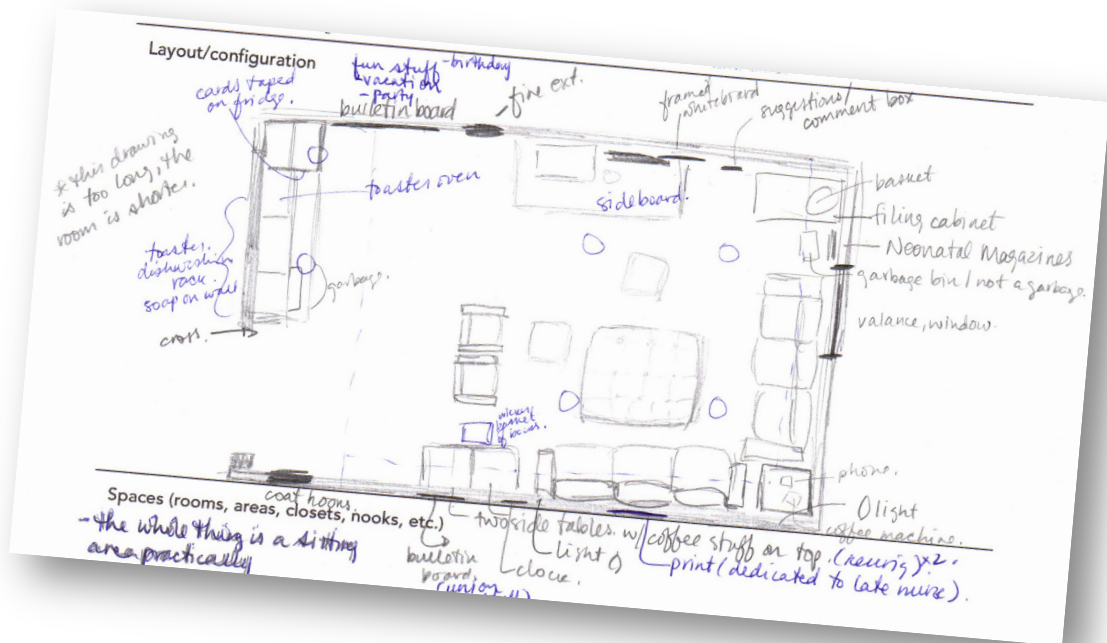 Layout/configuration
fun stuff -birthday
-vacation
-party
cards taped
on fridge.
bulletin board
fire ext.
framed
whiteboard
suggestions/
comment box
* this drawing
is too long, the
room is shorter.
toaster oven
sideboard.
basket
filing cabinet
Neonatal Magazines
garbage bin / not a garbage.
valance, window.
toaster.
dishwashing
rack.
soap on wall
garbage.
cross.
wicker
basket
of books.
phone.
light
coffee machine.
coat hooks
Spaces (rooms, areas, closets, nooks, etc.)
- the whole thing is a sitting
area practically
two side tables. w/ coffee stuff on top. (keurig) x2.
bulletin
board.
light
clock.
print (dedicated to late nurse).